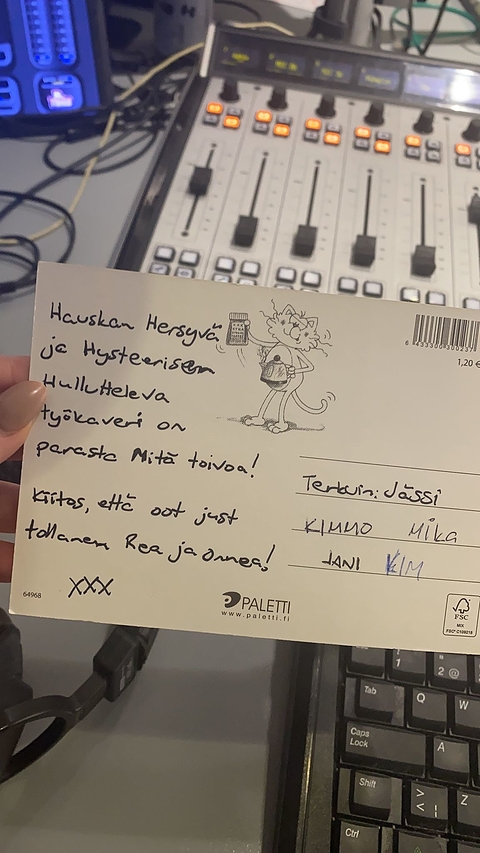 Hauskan Hersyvä
ja Hysteerisen
Hullutteleva
työkaveri on
parasta Mitä toivoa!
Kiitos, että oot just
tollanen Rea ja onnea!
XXX
1,20 €
Terkuin: Jässi
KIMMO MiKa
JANI KIM
64968
PALETTI
www.paletti.fi
FSC
MIX
1
2 @
Tab
Q
W
Caps
Lock
A
Shift
>
< |
Z
Ctrl